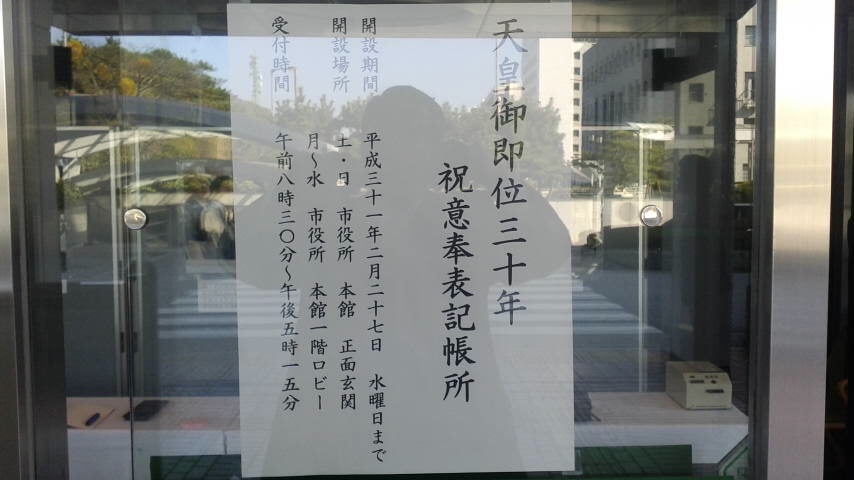 天皇御即位三十年
祝意奉表記帳所
開設期間 平成三十一年二月二十七日 水曜日まで
開設場所 土・日 市役所 本館 正面玄関
月～水 市役所 本館一階ロビー
受付時間 午前八時三〇分～午後五時一五分